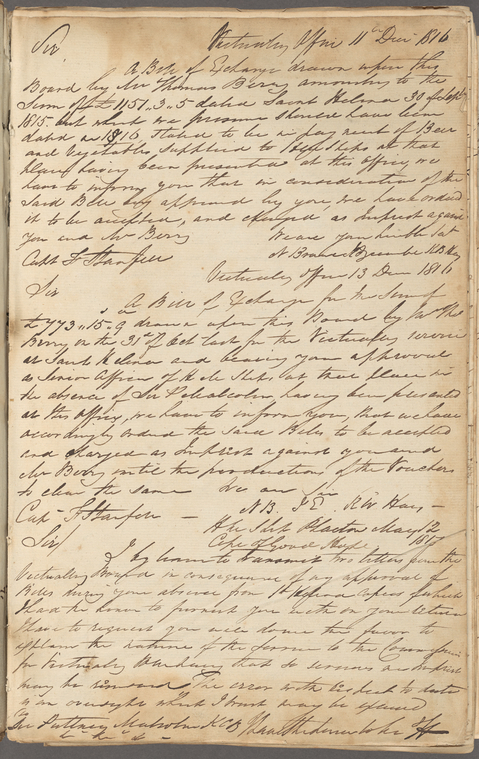 Sir Victualling Office 11th Decr 1816
A Bill of Exchange drawn upon this
Board by Mr Thomas Berry amounting to the
Sum of £1157..3..5 dated Saint Helena 30th Septr
1815 but which we presume should have been
dated in 1816 stated to be in payment of Beer
and Vegetables supplied to the Ships at that
place having been presented at this Office, we
have to inform you that in consideration of the
said Bill being approved by you, we have ordered
it to be accepted, and charged as imprest against
you and Mr Berry We are your humble Servt
Captn F Stanfell N Brown
Victualling Office 13 Decr 1816
Sir
A Bill of Exchange for the Sum of
£773..15..9 drawn upon this Board by Mr Thos
Berry on the 31st of Oct last for the Victualling service
at Saint Helena and bearing your approval
as Senior Officer of H M Ships at that place in
the absence of Sir P Malcolm, having been presented
at this Office, we have to inform you, that we have
accordingly ordered the said Bills to be accepted
and charged as Imprest against you and
Mr Berry until the production of the Vouchers
to clear the same We are Sir
Captn F Stanfell — N.B.
H M Ship Phaeton May 12
Sir Cape of Good Hope 1817
I beg leave to transmit two letters from the
Victualling Board in consequence of my approval of
Bills during your absence from St Helena copies of which
I had the honor to furnish you with on your return
I have to request you will do me the favor to
explain the nature of the service to the Commissioners
for Victualling that so serious an imprest
may be removed The error with respect to date
is an oversight which I trust may be excused
Sir Pultney Malcolm KCB I have the honor to be